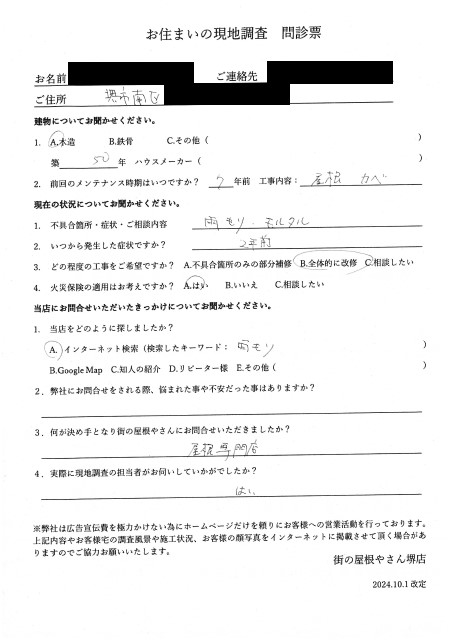 お住まいの現地調査　問診票
お名前　ご連絡先
ご住所　堺市南区
建物についてお聞かせください。
1. A.木造　B.鉄骨　C.その他（　）
築 50 年　ハウスメーカー（　）
2. 前回のメンテナンス時期はいつですか？ 7 年前　工事内容： 屋根 カベ
現在の状況についてお聞かせください。
1. 不具合箇所・症状・ご相談内容　雨モリ・モルタル
2. いつから発生した症状ですか？　2年前
3. どの程度の工事をご希望ですか？ A.不具合箇所のみの部分補修　B.全体的に改修　C.相談したい
4. 火災保険の適用はお考えですか？ A.はい　B.いいえ　C.相談したい
当店にお問合せいただいたきっかけについてお聞かせください。
1. 当店をどのように探しましたか？
A. インターネット検索（検索したキーワード： 雨モリ　）
B.Google Map　C.知人の紹介　D.リピーター様　E.その他（　）
2．弊社にお問合せをされる際、悩まれた事や不安だった事はありますか？
3．何が決め手となり街の屋根やさんにお問合せいただきましたか？
屋根専門店
4．実際に現地調査の担当者がお伺いしていかがでしたか？
はい
※弊社は広告宣伝費を極力かけない為にホームページだけを頼りにお客様への営業活動を行っております。
上記内容やお客様宅の調査風景や施工状況、お客様の顔写真をインターネットに掲載させて頂く場合があ
りますのでご協力お願いいたします。
街の屋根やさん堺店
2024.10.1 改定